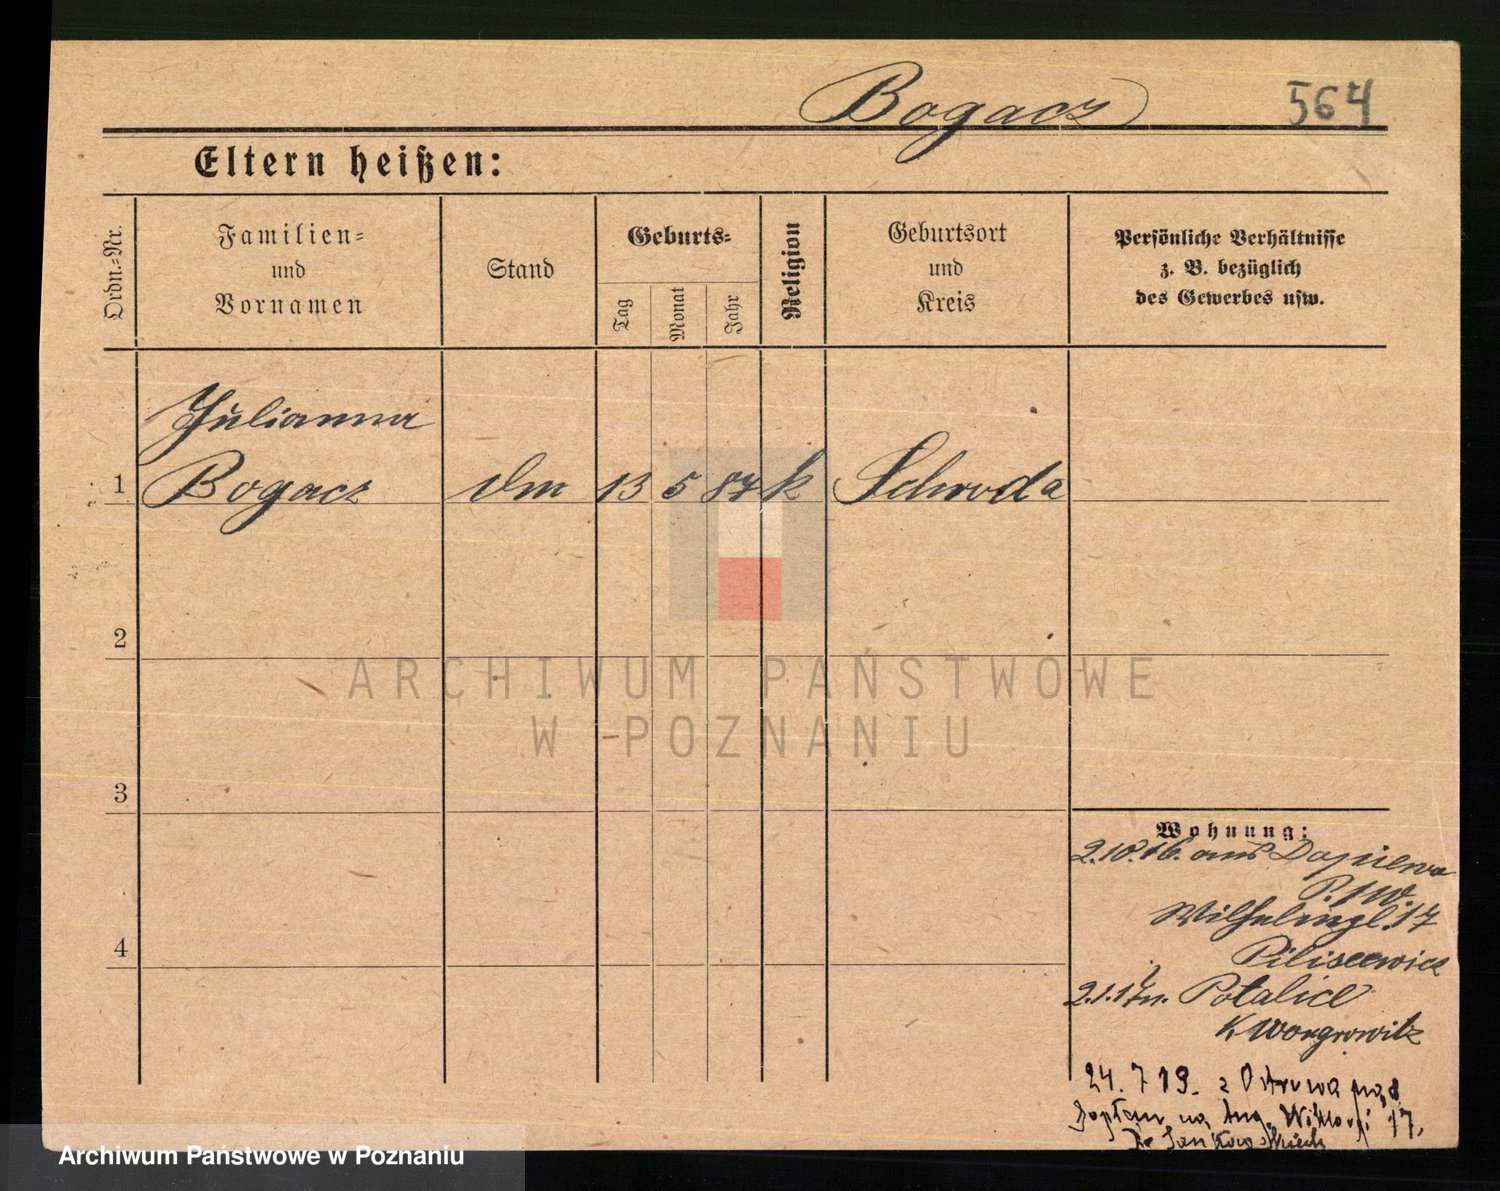 Bogacz 564
Eltern heißen:
Ordn.-Nr.
Familien-
und
Vornamen
Stand
Geburts-
Tag
Monat
Jahr
Religion
Geburtsort
und
Kreis
Persönliche Verhältnisse
z. B. bezüglich
des Gewerbes usw.
Julianna
1 Bogacz 13 5 87 k Schroda
2
3
4
Wohnung:
2.10.16. aus Dopiewo
P. W.
17
2.1.17 n. Potalice
K Wongrowitz
24.7 19. z Ostrowa nad
Gopłem na 17.
Dr
ARCHIWUM PAŃSTWOWE
W POZNANIU
Archiwum Państwowe w Poznaniu